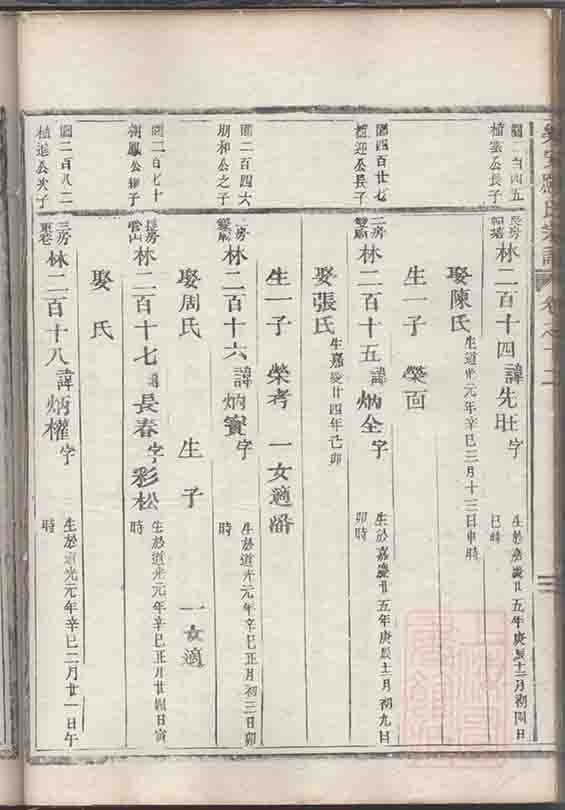 氏宗譜
卷之十二
三
園二百四五
植雲公長子
長房
林二百十四 諱先旺 字
生於嘉慶廿五年庚辰十二月初四日
巳時
娶陳氏 生道光元年辛巳三月十三日申時
生一子 榮面
園四百廿七
植迎公長子
二房
林二百十五 諱炳全 字
生於嘉慶廿五年庚辰十二月初九日
卯時
娶張氏 生嘉慶廿四年己卯
生一子 榮考 一女適潘
園二百四六
朋和公之子
房
林二百十六 諱炳寶 字
生於道光元年辛巳正月初三日卯
時
娶周氏 生子 一女適
園二百七十
朝鳳公繼子
長房
雲山
林二百十七 諱長春 字彩松
生於道光元年辛巳正月廿四日寅
時
娶 氏
園二百八二
植進公次子
三房
林二百十八 諱炳權 字
生於道光元年辛巳二月廿一日午
時